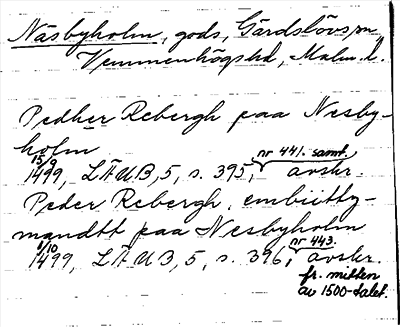 Näsbyholm, gods, Gärdslövs sn
Vemmenhögs hd, Malm. l.
Pedher Rebergh paa Nesby-
holm
15/9 nr 441. samt.
1499, LÄUB, 5, s. 395, avskr.
Peder Rebergh, embiitty-
mandtt paa Nesbyholm
6/10 nr 443.
1499, LÄUB, 5, s. 396, avskr.
fr. mitten
av 1500-talet.